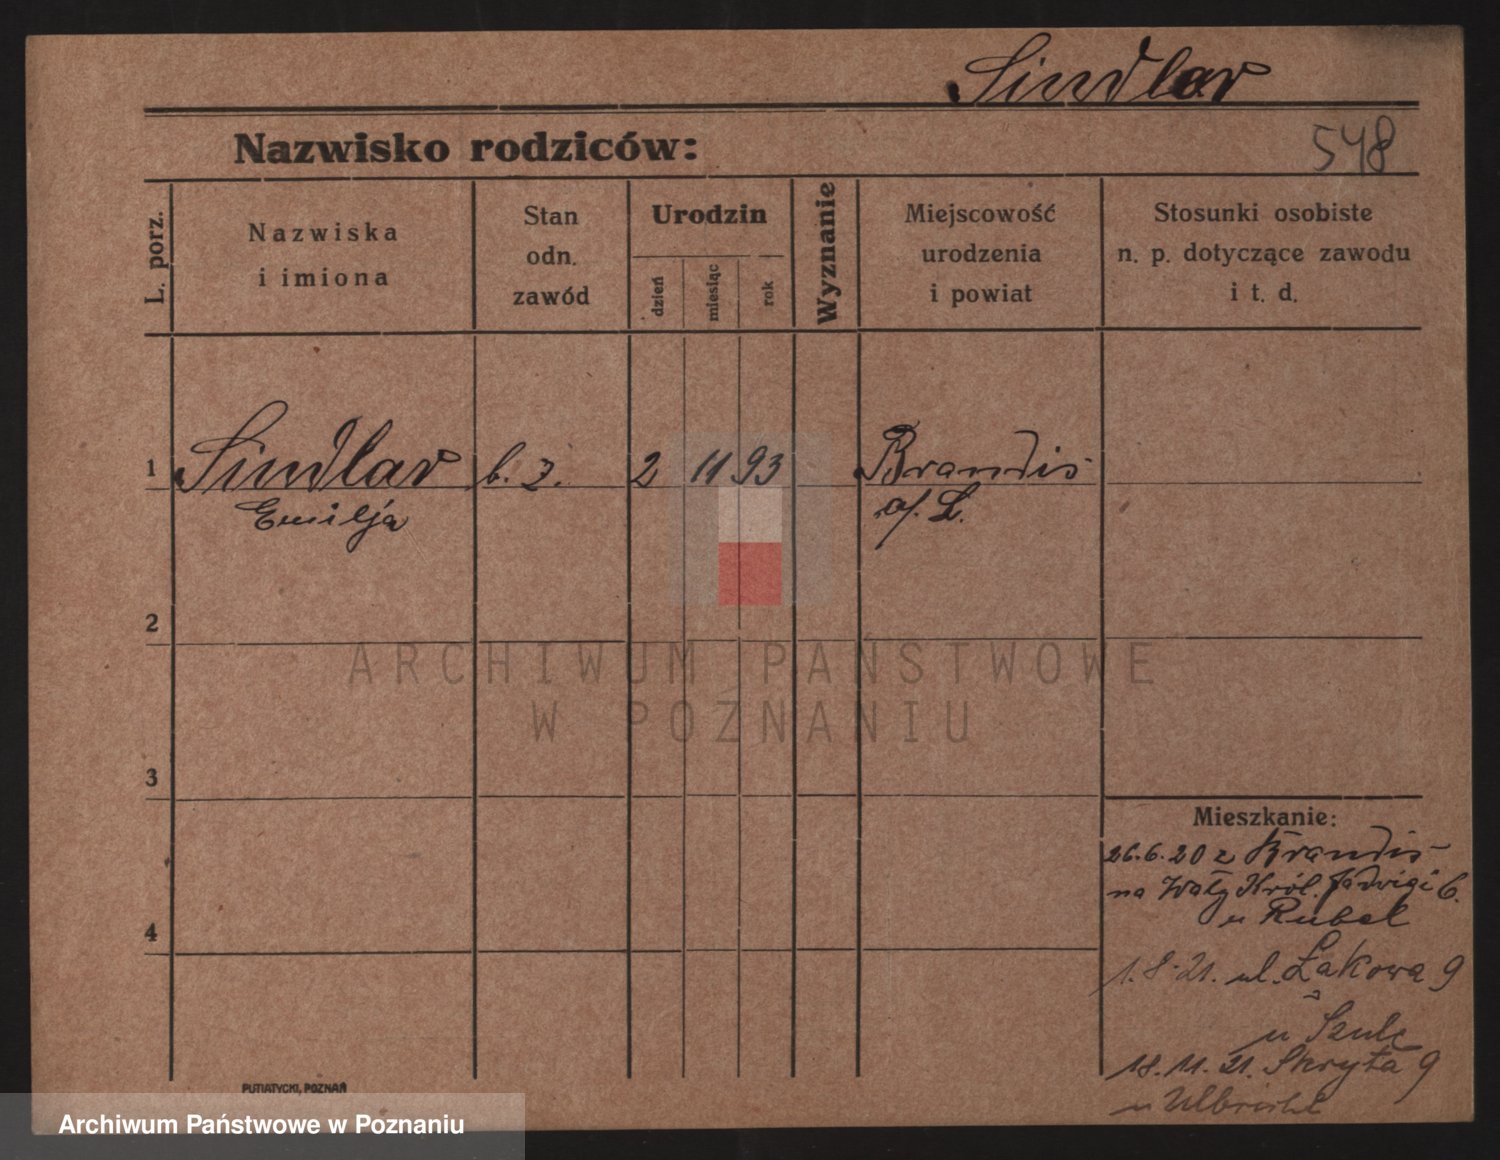 Sindlar
Nazwisko rodziców:
548
L. porz.
Nazwiska
i imiona
Stan
odn.
zawód
Urodzin
dzień
miesiąc
rok
Wyznanie
Miejscowość
urodzenia
i powiat
Stosunki osobiste
n. p. dotyczące zawodu
i t. d.
1 Sindlar b. z. 2 11 93 Brandis
Emilja a/. L.
2
ARCHIWUM PAŃSTWOWE
W POZNANIU
3
Mieszkanie:
26.6.20 z Brandis
na Wały Król. Jadwigi 6.
u Rubel
4
1.8.21. ul. Łąkowa 9
u Szulc
18.11.21. Skryta 9
u Ulbricht
PUTIATYCKI, POZNAŃ
Archiwum Państwowe w Poznaniu